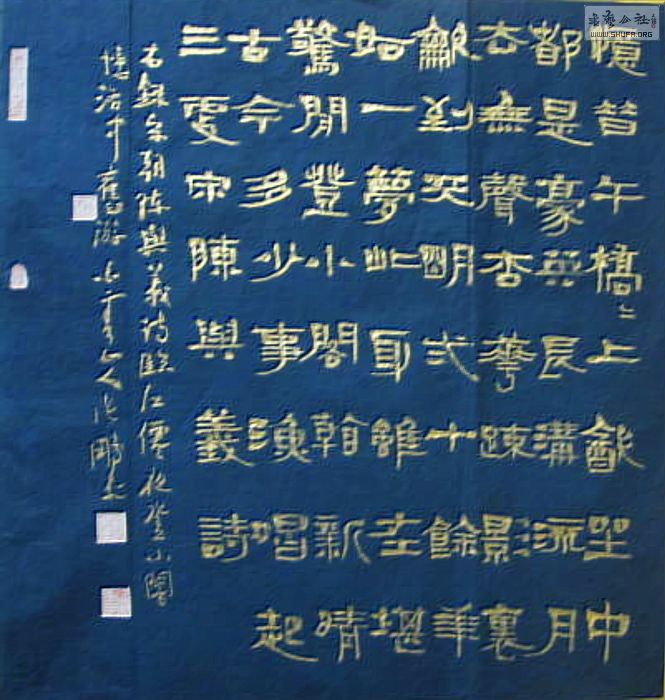 憶昔午橋〻上飲坐中
都是豪英長溝流月
去無聲杏華疎影裏
龡到天明弍十餘年
如一夢此身雖在堪
驚閒登小閣看新晴
古今多少事漁唱起
三更宋陳與義詩
右錄宋朝陳與義詩臨江僊夜登小閣
憶洛中舊游
WWW.SHUFA.ORG